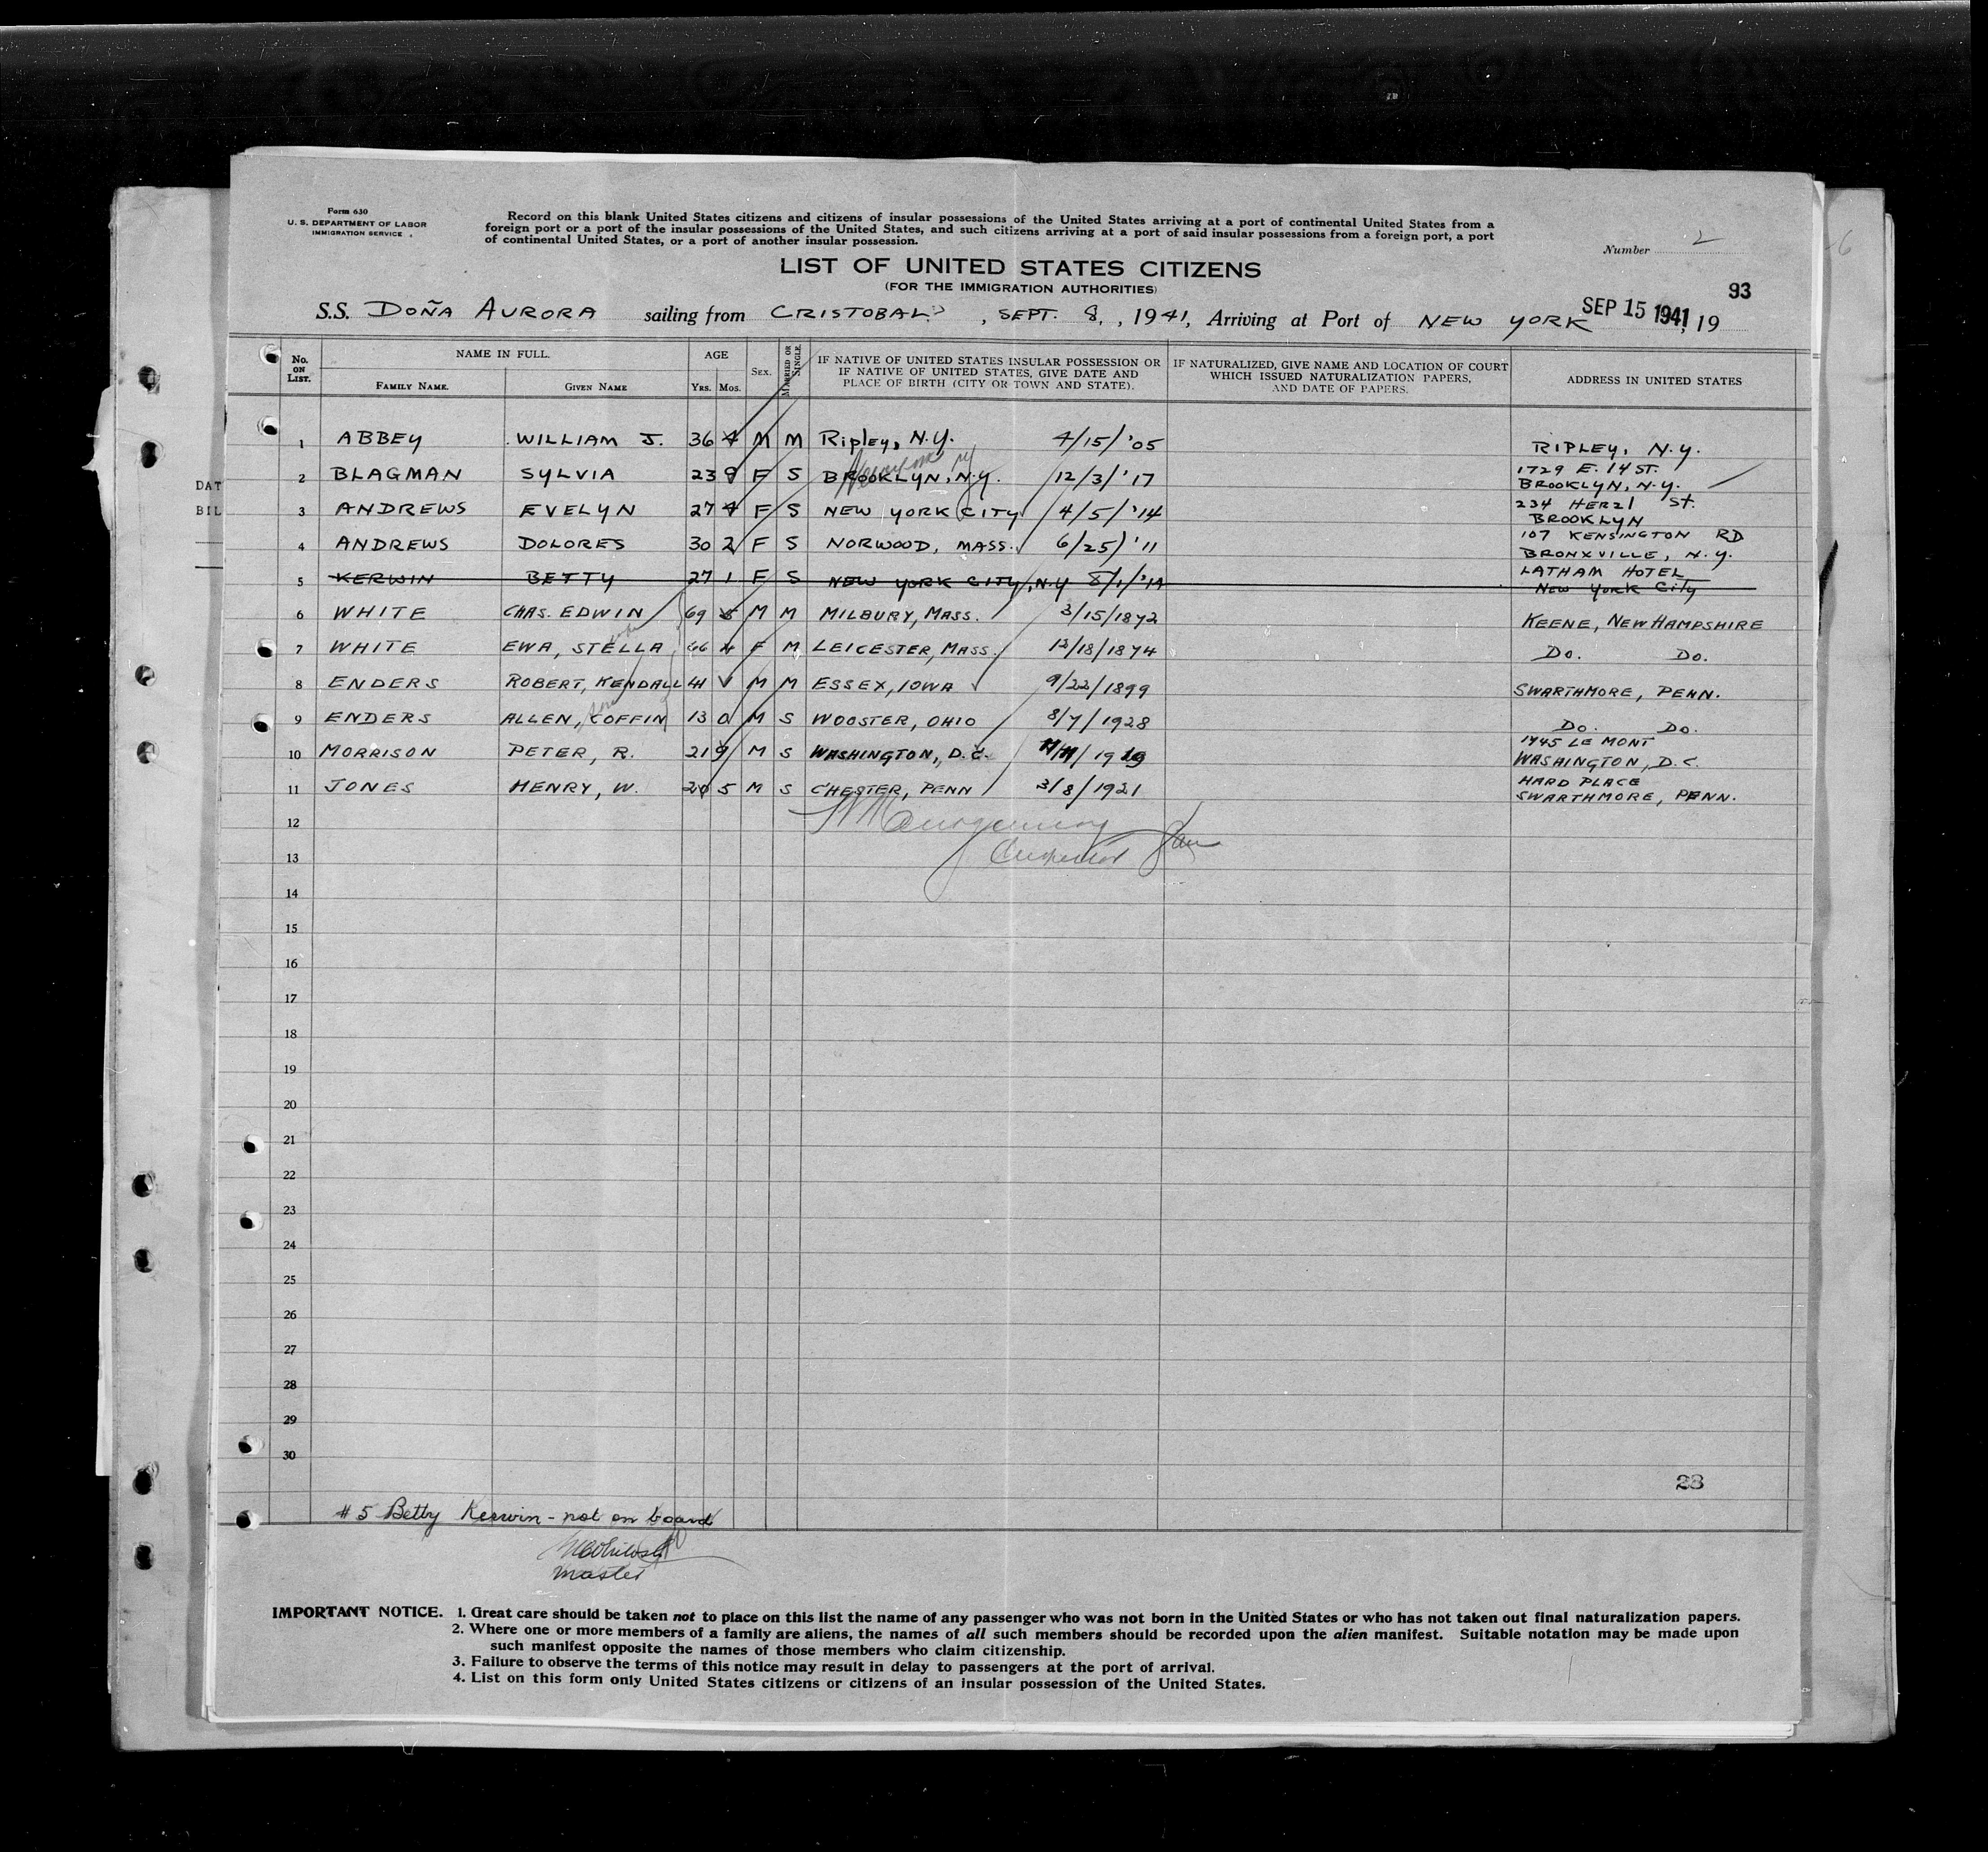 Form 630
U. S. DEPARTMENT OF LABOR
IMMIGRATION SERVICE
Record on this blank United States citizens and citizens of insular possessions of the United States arriving at a port of continental United States from a
foreign port or a port of the insular possessions of the United States, and such citizens arriving at a port of said insular possessions from a foreign port, a port
of continental United States, or a port of another insular possession.
Number 2
LIST OF UNITED STATES CITIZENS
(FOR THE IMMIGRATION AUTHORITIES)
93
S.S. DOÑA AURORA sailing from CRISTOBAL, SEPT. 8, , 1941, Arriving at Port of NEW YORK SEP 15 1941, 19
No. ON LIST.
NAME IN FULL.
FAMILY NAME.
GIVEN NAME
AGE
YRS. MOS.
SEX.
MARRIED OR SINGLE.
IF NATIVE OF UNITED STATES INSULAR POSSESSION OR
IF NATIVE OF UNITED STATES, GIVE DATE AND
PLACE OF BIRTH (CITY OR TOWN AND STATE).
IF NATURALIZED, GIVE NAME AND LOCATION OF COURT
WHICH ISSUED NATURALIZATION PAPERS,
AND DATE OF PAPERS.
ADDRESS IN UNITED STATES
DAT
BIL
1 ABBEY WILLIAM J. 36 4 M M Ripley, N.Y. 4/15/'05 RIPLEY, N.Y.
2 BLAGMAN SYLVIA 23 9 F S BROOKLYN, N.Y. 12/3/'17 1729 E. 14 ST.
BROOKLYN, N.Y.
3 ANDREWS EVELYN 27 4 F S NEW YORK CITY 4/5/'14 234 HERZL St.
BROOKLYN
4 ANDREWS DOLORES 30 2 F S NORWOOD, MASS. 6/25/'11 107 KENSINGTON RD
BRONXVILLE, N.Y.
5 KERWIN BETTY 27 1 F S NEW YORK CITY, N.Y 8/1/'14 LATHAM HOTEL
NEW YORK CITY
6 WHITE CHAS. EDWIN 69 5 M M MILBURY, MASS. 3/15/1872 KEENE, NEW HAMPSHIRE
7 WHITE EWA, STELLA 66 F M LEICESTER, MASS. 12/18/1874 Do. Do.
8 ENDERS ROBERT, KENDALL 41 M M ESSEX, IOWA 9/22/1899 SWARTHMORE, PENN.
9 ENDERS ALLEN, COFFIN 13 0 M S WOOSTER, OHIO 8/7/1928 Do. Do.
10 MORRISON PETER, R. 21 9 M S WASHINGTON, D.C. 11/11/1919 1745 LE MONT
WASHINGTON, D.C.
11 JONES HENRY, W. 20 5 M S CHESTER, PENN 3/8/1921 HARD PLACE
SWARTHMORE, PENN.
12
13
14
15
16
17
18
19
20
21
22
23
24
25
26
27
28
29
30
23
# 5 Betty Kerwin - not on board
Master
IMPORTANT NOTICE. 1. Great care should be taken not to place on this list the name of any passenger who was not born in the United States or who has not taken out final naturalization papers.
2. Where one or more members of a family are aliens, the names of all such members should be recorded upon the alien manifest. Suitable notation may be made upon
such manifest opposite the names of those members who claim citizenship.
3. Failure to observe the terms of this notice may result in delay to passengers at the port of arrival.
4. List on this form only United States citizens or citizens of an insular possession of the United States.